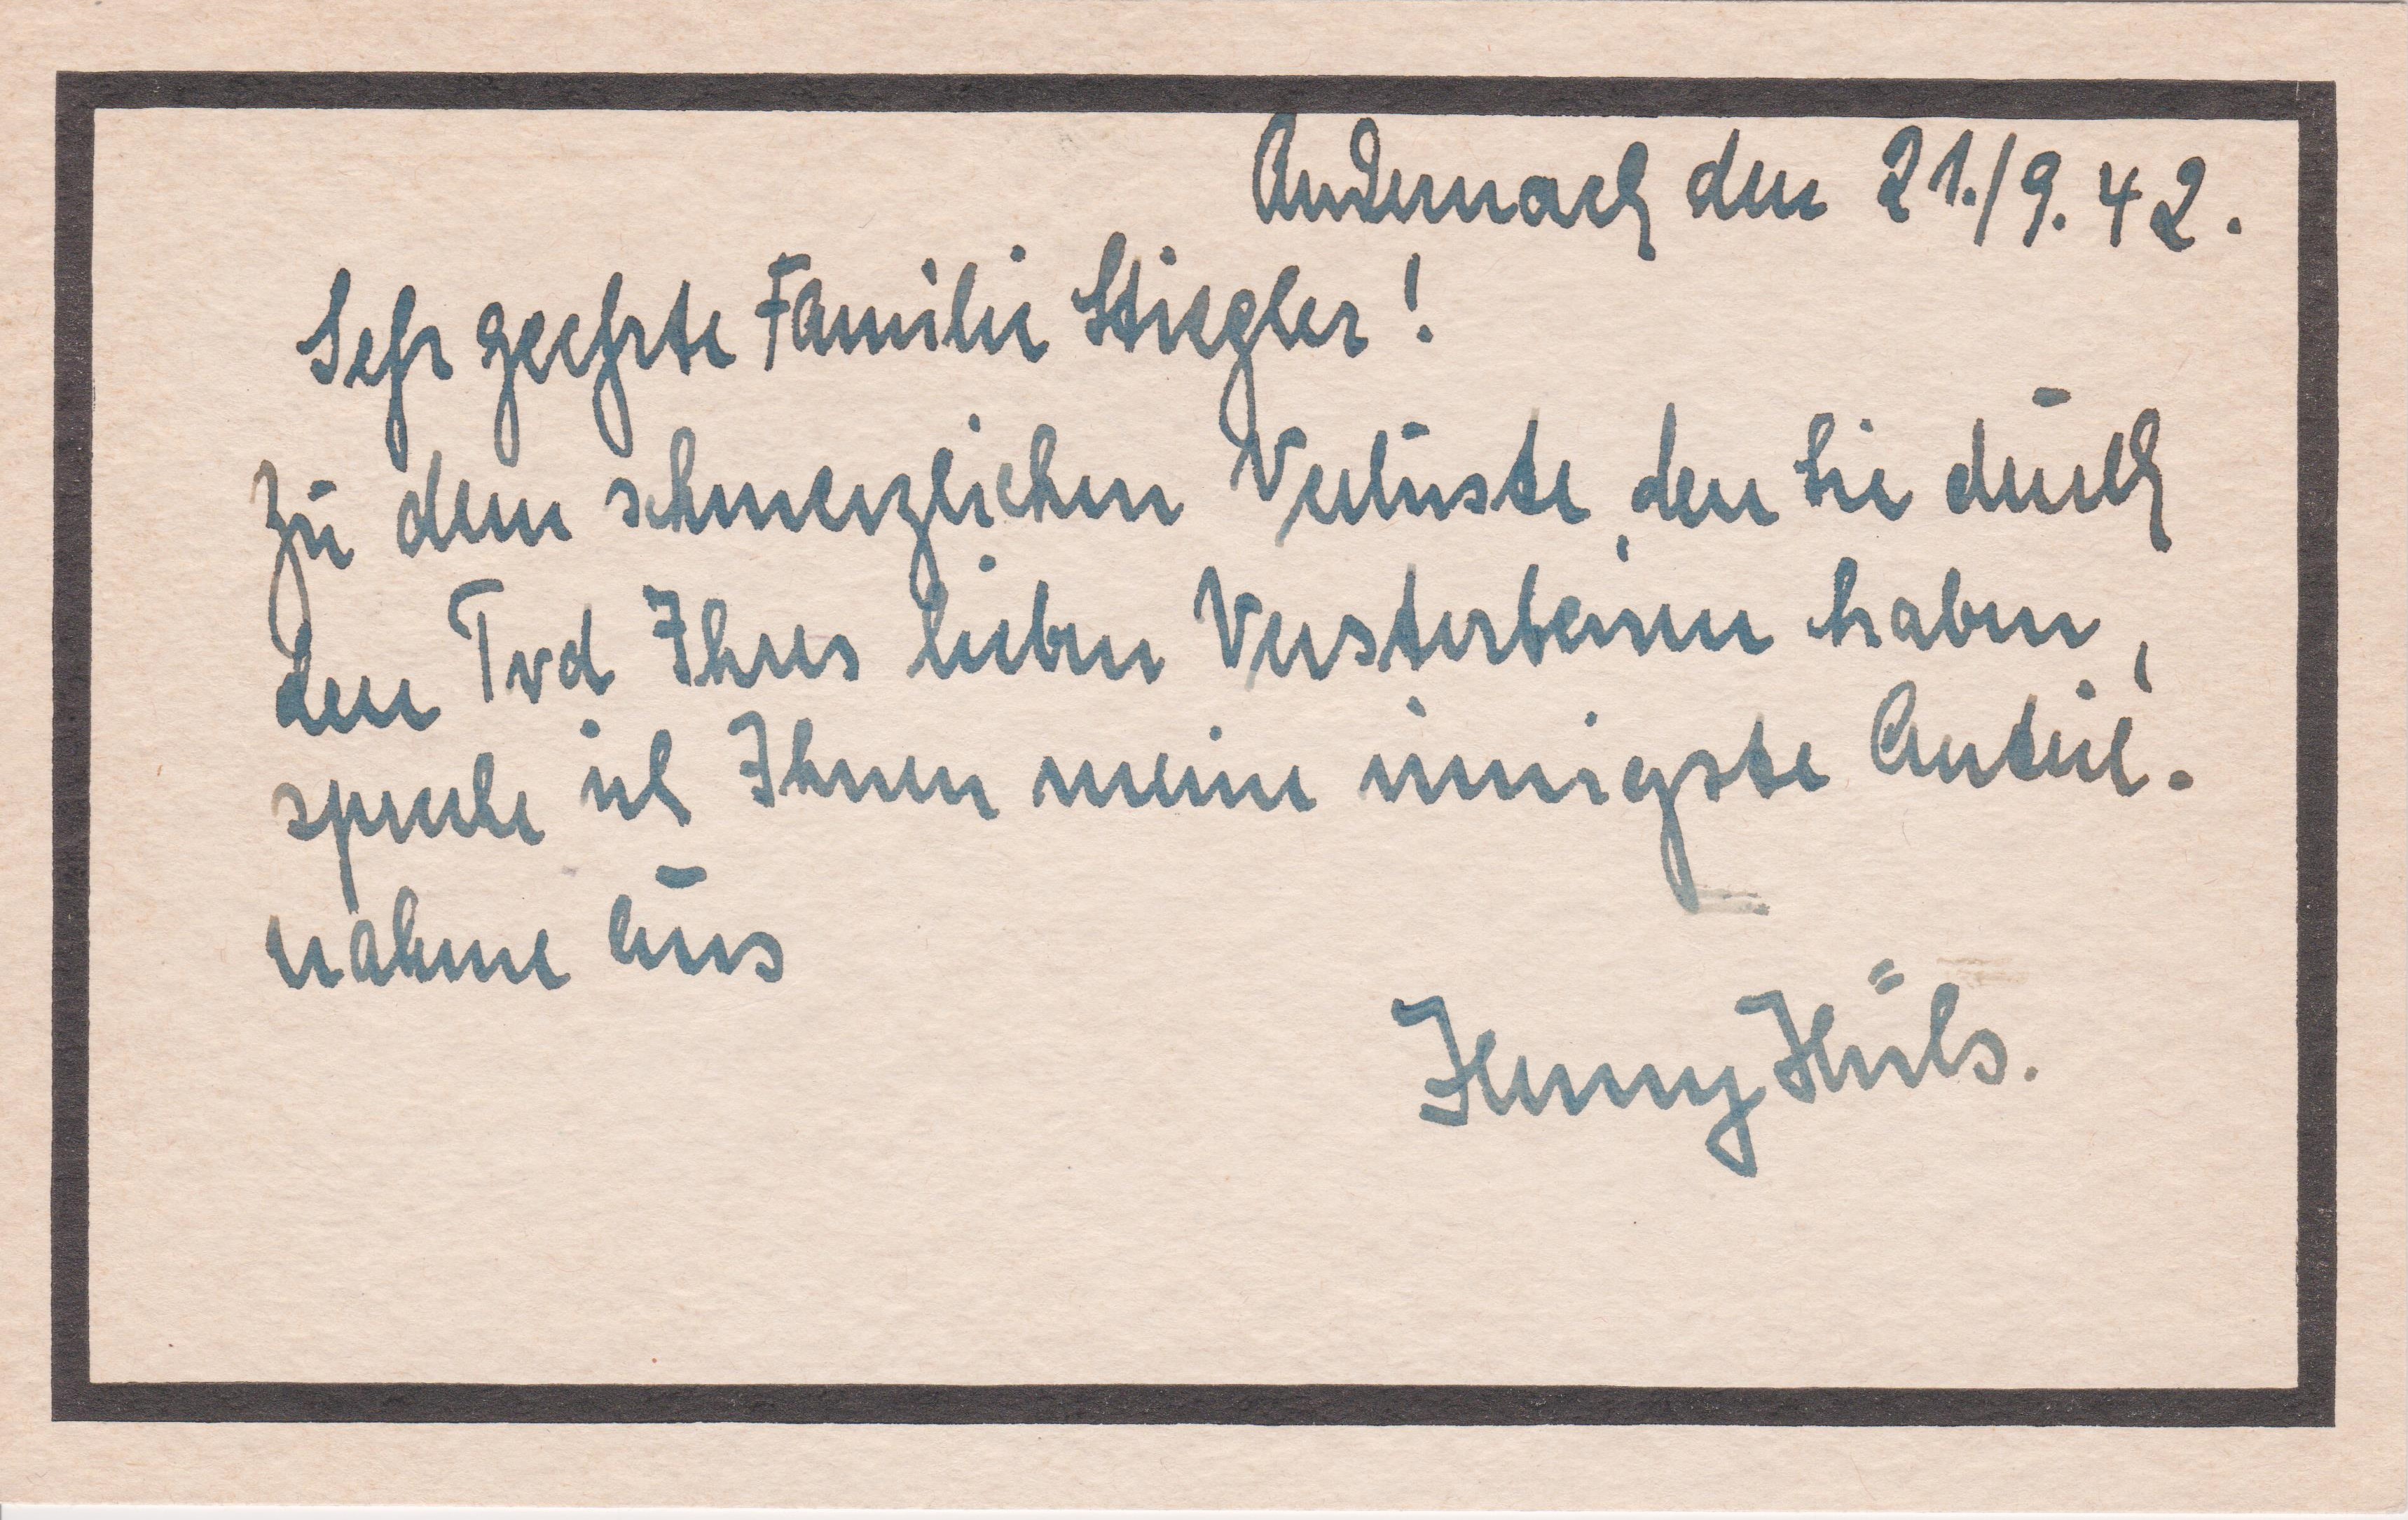 Andernach den 21./9. 42.
Sehr geehrte Familie Stiegler!
Zu dem schmerzlichen Verluste, den Sie durch
den Tod Ihres lieben Verstorbenen haben,
spreche ich Ihnen meine innigste Anteil-
nahme aus
Henny Hüls.